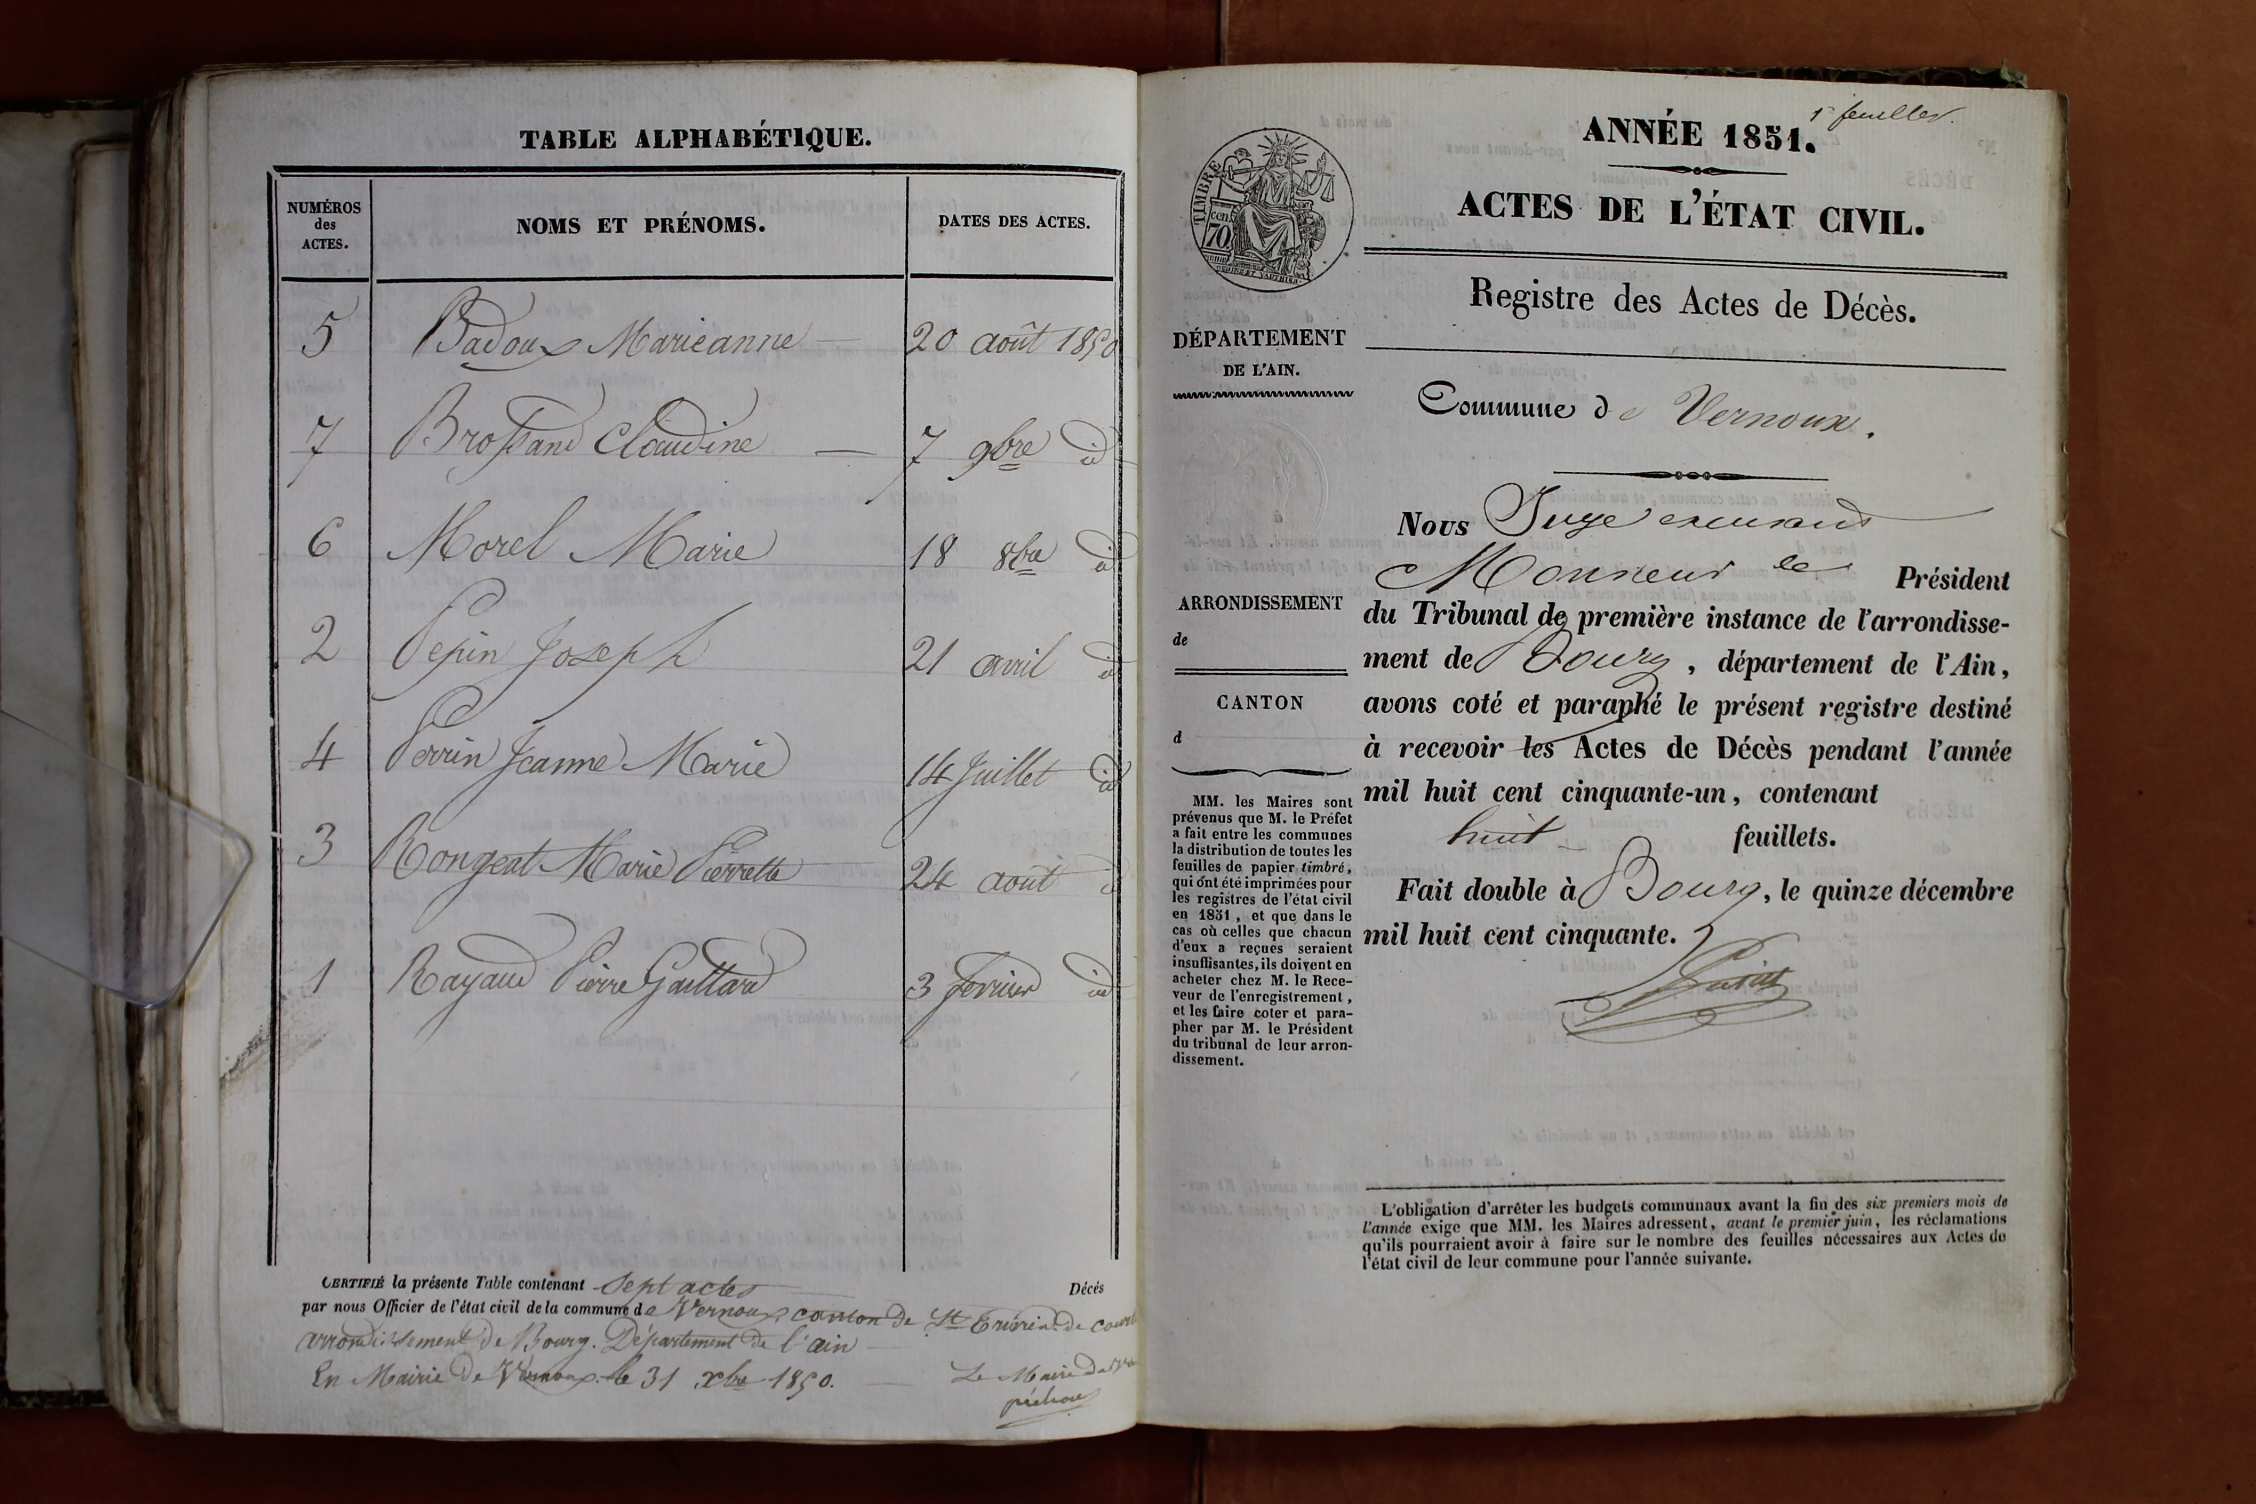 TABLE ALPHABÉTIQUE.
NUMÉROS des ACTES. NOMS ET PRÉNOMS. DATES DES ACTES.
5 Badoux Marieanne 20 août 1850
7 Brossand Claudine 7 9bre id
6 Morel Marie 18 8bre id
2 Pepin Joseph 21 avril id
4 Perrin Jeanne Marie 14 Juillet id
3 Rongeat Marie Pierrette 24 août id
1 Rayaud Pierre Gaillard 3 fevrier id
CERTIFIÉ la présente Table contenant sept actes Décés
par nous Officier de l'état civil de la commune de Vernoux canton de St
arrondissement de Bourg. Département de l'ain
En Mairie de Vernoux le 31 xbre 1850.
Le Maire de
1r feuillet.
ANNÉE 1851.
ACTES DE L'ÉTAT CIVIL.
Registre des Actes de Décès.
Commune de Vernoux.
TIMBRE
70 cen.
DÉPARTEMENT
DE L'AIN.
ARRONDISSEMENT
de
CANTON
d
MM. les Maires sont
prévenus que M. le Préfet
a fait entre les communes
la distribution de toutes les
feuilles de papier timbré,
qui ont été imprimées pour
les registres de l'état civil
en 1851, et que dans le
cas où celles que chacun
d'eux a reçues seraient
insuffisantes, ils doivent en
acheter chez M. le Rece-
veur de l'enregistrement,
et les faire coter et para-
pher par M. le Président
du tribunal de leur arron-
dissement.
Nous Juge
Monsieur le Président
du Tribunal de première instance de l'arrondisse-
ment de Bourg, département de l'Ain,
avons coté et paraphé le présent registre destiné
à recevoir les Actes de Décès pendant l'année
mil huit cent cinquante-un, contenant
huit feuillets.
Fait double à Bourg, le quinze décembre
mil huit cent cinquante.
L'obligation d'arrêter les budgets communaux avant la fin des six premiers mois de
l'année exige que MM. les Maires adressent, avant le premier juin, les réclamations
qu'ils pourraient avoir à faire sur le nombre des feuilles nécessaires aux Actes de
l'état civil de leur commune pour l'année suivante.